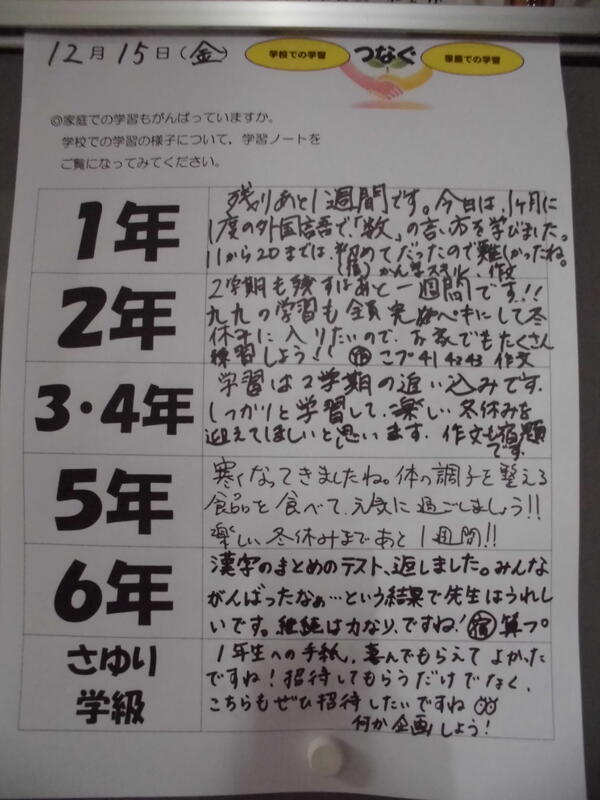 12月15日(金)
学校での学習 つなぐ 家庭での学習
◎家庭での学習もがんばっていますか。
学校での学習の様子について，学習ノートを
ご覧になってみてください。
1年
残りあと1週間です。今日は、1ヶ月に
1度の外国語で、「数」の言い方を学びました。
11から20までは、初めてだったので難しかったね。
(宿) かん字スキル、作文
2年
2学期も残すはあと一週間です!!
九九の学習も全員完ぺキにして冬
休みに入りたいので、お家でもたくさん
練習しよう!! 宿 こプ41 42 43 作文
3・4年
学習は2学期の追い込みです.
しっかりと学習して、楽しい冬休みを
迎えてほしいと思います. 作文も宿題
です.
5年
寒くなってきましたね。体の調子を整える
食品を食べて、元気に過ごしましょう!!
楽しい冬休みまであと1週間!!
6年
漢字のまとめのテスト、返しました。みんな
がんばったなぁ…という結果で先生はうれし
いです。継続は力なり、ですね! 宿 算プ
さゆり
学級
1年生への手紙，喜んでもらえてよかった
ですね！招待してもらうだけでなく，
こちらもぜひ招待したいですね
何か企画しよう！